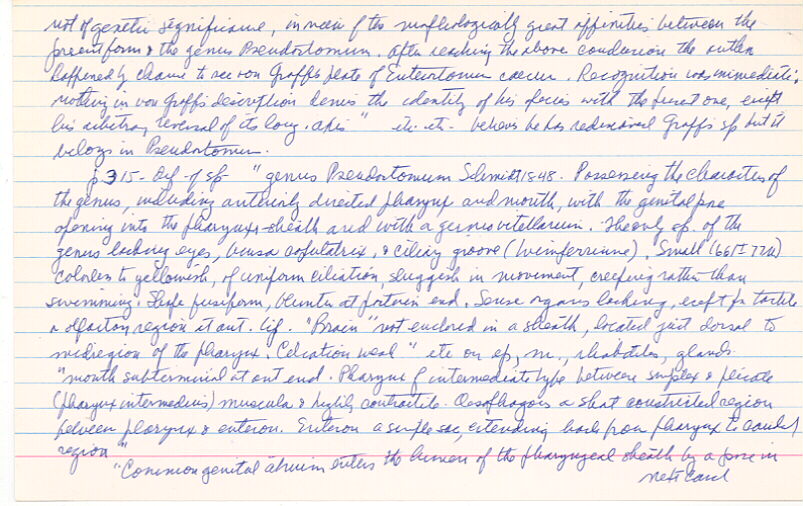 not of genetic significance, in view of the morphologically great affinities between the
present form & the genus Pseudostomum. After reaching the above conclusion the author
happened by chance to see von Graff's plate of Enterostomum coecum. Recognition was immediate;
nothing in von Graff's description denies the identity of his species with the present one, except
his arbitrary reversal of its long. axis" etc. etc. believes he has rediscovered Graff's sp but it
belongs in Pseudostomum.
p 315 - Def - of sp - "genus Pseudostomum Schmidt 1848. Possessing the characters of
the genus, including anteriorly directed pharynx and mouth, with the genital pore
opening into the pharynx-sheath and with a germovitellarium. The only sp. of the
genus lacking eyes, bursa copulatrix, & ciliary groove (Wimperrinne). Small
colorless to yellowish, of uniform ciliation, sluggish in movement, creeping rather than
swimming. Shape fusiform, blunter at posterior end. Sense organs lacking, except for tactile
& olfactory region at ant. tip. "Brain" not enclosed in a sheath, located just dorsal to
midregion of the pharynx. Ciliation weak" etc on ep, m., rhabdites, glands
"mouth subterminal at ant end. Pharynx of intermediate type between simplex & plicate
(pharynx intermedius) muscular & highly contractile. Oesophagus a short constricted region
between pharynx & enteron. Enteron a simple sac, extending back from pharynx to caudal
region"
"Common genital atrium enters the lumen of the pharyngeal sheath by a pore in
next card